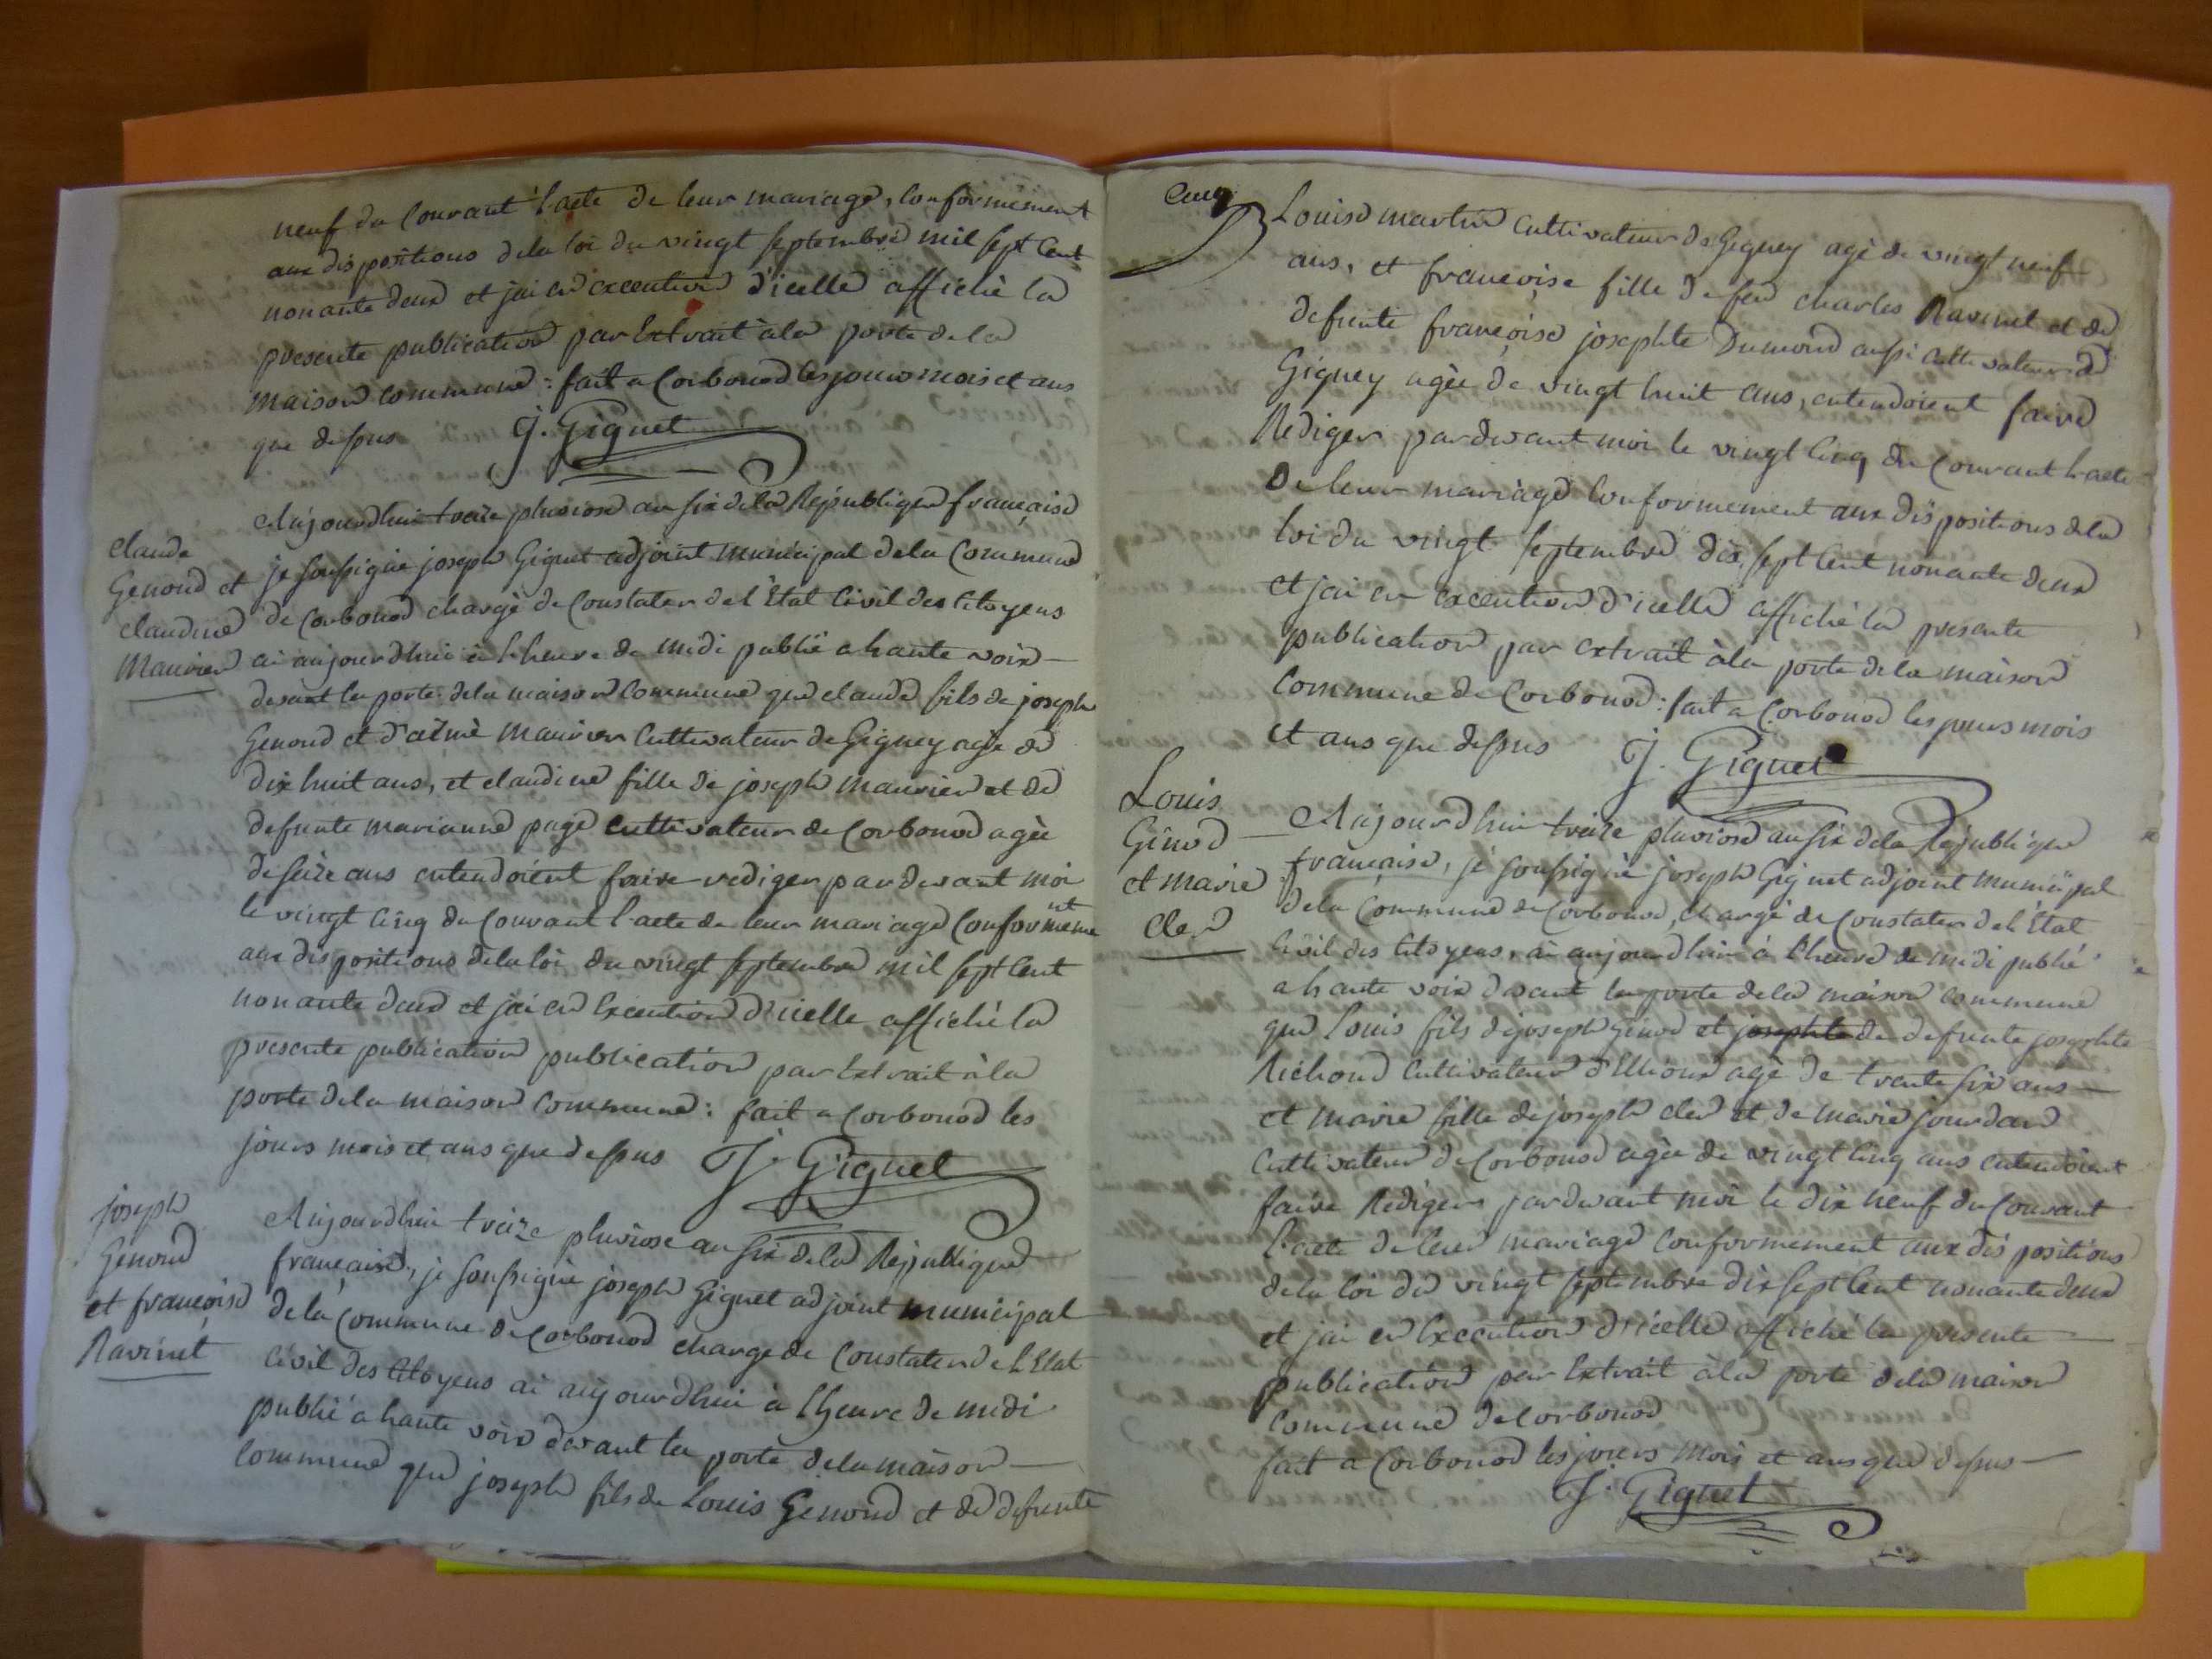 neuf du Courant l'acte de leur mariage, Conformement
aux dispositions de la loi du vingt septembre mil sept Cent
nonante deux et jai en execution d'icelle affiché la
presente publication par Extrait à la porte de la
maison commune : fait a Corbonod les jours mois et ans
que dessus J. Giguet
Aujourdhui treize pluviose an six de la Republique française
claude
Genoud et
claudine
Maurier
je soussigné joseph Giguet adjoint municipal de la Commune
de Corbonod chargé de Constater de l'Etat Civil des Citoyens
ai aujourdhui à l'heure de midi publié a haute voix
devant la porte de la maison Commune que claude fils de joseph
Genoud et d'aimé Maurier Cultivateur de Gigney agé de
dix huit ans, et claudine fille de joseph Maurier et de
defunte marianne page Cultivateur de Corbonod agée
de seize ans entendoient faire rediger pardevant moi
le vingt Cinq du Courant l'acte de leur mariage Conformement
aux dispositions de la loi du vingt septembre mil sept Cent
nonante deux et jai en Execution d'icelle affiché la
presente publication publication par Extrait à la
porte de la maison Commune : fait a Corbonod les
jours mois et ans que dessus J. Giguet
joseph
Genoud
et françoise
Ravinet
Aujourdhui treize pluviose an six de la Republique
française, je soussigné joseph Giguet adjoint municipal
de la Commune de Corbonod chargé de Constater de l'Etat
Civil des Citoyens ai aujourdhui à l'heure de midi
publié a haute voix devant la porte de la maison
Commune que joseph fils de Louis Genoud et de defunte
Louise martin Cultivateur de Gigney agé de vingt neuf
ans, et françoise fille de feu charles Ravinet et de
defunte françoise josephte Dumond aussi Cultivateur de
Gigney agée de vingt huit ans, entendoient faire
Rediger pardevant moi le vingt Cinq du Courant l'acte
de leur mariage Conformement aux dispositions de la
loi du vingt septembre dix sept Cent nonante deux
et jai en execution d'icelle affiché la presente
publication par extrait à la porte de la maison
Commune de Corbonod : fait a Corbonod les jours mois
et ans que dessus J. Giguet
Louis
Ginod
et marie
Cler
Aujourdhui treize pluviose an six de la Republique
française, je soussigné joseph Giguet adjoint municipal
de la Commune de Corbonod, chargé de Constater de l'Etat
Civil des Citoyens, ai aujourdhui à l'heure de midi publié
a haute voix devant la porte de la maison Commune
que Louis fils de joseph ginod et josephte de defunte josephte
Richond Cultivateur d'Elhoux agé de trente six ans
et marie fille de joseph cler et de marie jourdan
Cultivateur de Corbonod agée de vingt Cinq ans entendoient
faire Rediger pardevant moi le dix neuf du Courant
l'acte de leur mariage Conformement aux dispositions
de la loi du vingt septembre dix sept Cent nonante deux
et jai en Execution d'icelle affiché la presente
publication par Extrait à la porte de la maison
Commune de Corbonod
fait a Corbonod les jours mois et ans que dessus
J. Giguet